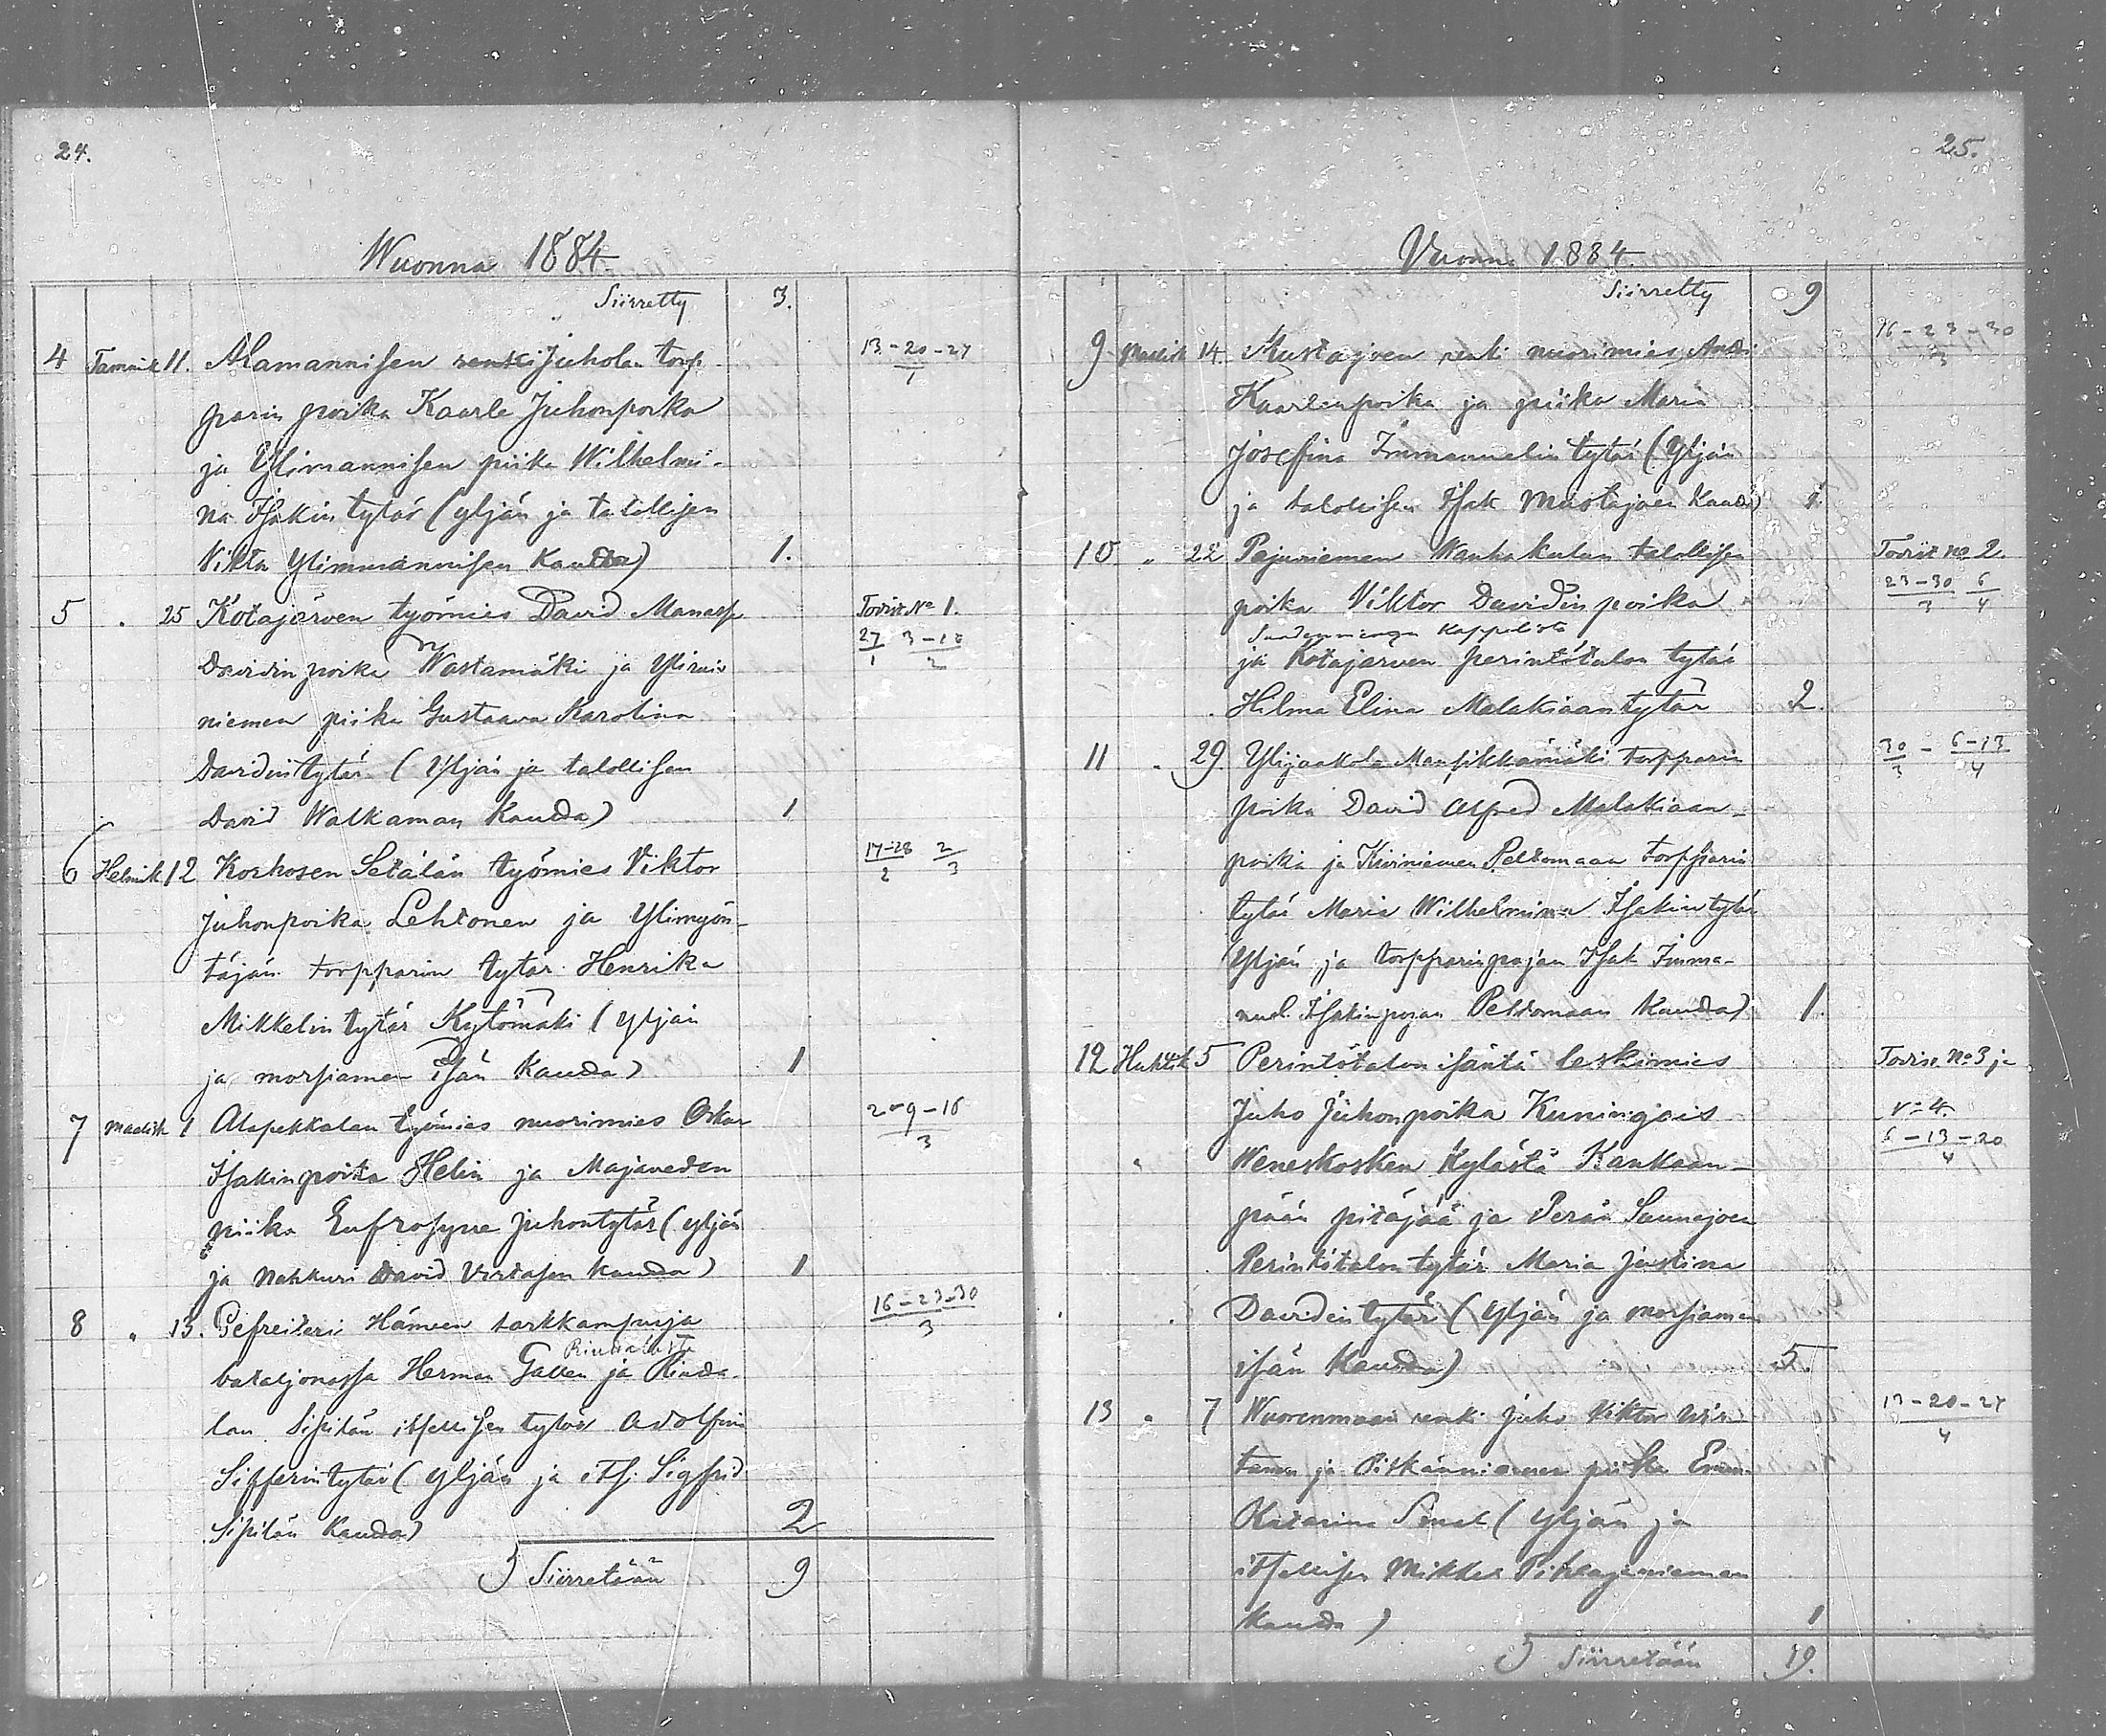 24.
Wuonna 1884
Siirretty 3.
4 Tammik 11. Alamannisen renki Juholan torp- 13-20-27/1
parin poika Kaarle Juhonpoika
ja Ylimannisen piika Wilhelmi-
na Isakintytär (yljän ja talollisen
Vikta Ylimmannisen kautta) 1.
5 " 25 Kotajärven työmies David Manasse Todist No 1.
Davidinpoika Wastamäki ja 27/1 3-10/2
niemen piika Gustaava Karolina
Davidintytär (Yljän ja talollisen
David Walkaman kautta) 1
6 Helmik 12 Korhosen Setälän työmies Viktor 17-28/2 2/3
Juhonpoika Lehtonen ja Ylimyön-
täjän torpparin tytär Henrika
Mikkelintytär Kytömäki (yljän
ja morsiamen isän kautta) 1
7 Maalisk 1 Alapekkalan työmies nuorimies Oskar 2-9-16/3
Isakinpoika Helin ja Majaveden
piika Eufrosyne Juhontytär (yljän
ja nahkuri David Virtasen kautta) 1
8 " 13. Gefreiteri Hämeen tarkkampuja 16-23-30/3
bataljonassa Herman Gallen ja Rinda-
lan Sipilän itsellisen tytär Adolfina
Sifferintytär (yljän ja its. Sigfrid
Sipilän kautta) 2
Siirretään 9
25.
Vuonna 1884.
Siirretty 9
9 Maalisk 14. Mustajoen renki nuorimies Antti 16-23-30/3
Kaarlenpoika ja piika Maria
Josefina Immanuelintytär (Yljän
ja talollisen Isak Mustajoen kautta) 1.
10 " 22 Pajuniemen Wanhakulun talollisen Todist no 2.
poika Viktor Davidinpoika 23-30/3 6/4
Suodenniemen kappelista
ja Kotajärven perintötalon tytär
Hilma Elina Malakiaantytär 2.
11 " 29. Ylijaakola Mansikkamäki torpparin 30/3 - 6-13/4
poika David Alfred Malakiaan-
poika ja Kiviniemen Peltomaan torpparin
tytär Maria Wilhelmina Isakintytär
(Yljän ja torpparinpojan Isak Imma-
nuel Isakinpojan Peltomaan kautta) 1.
12 Huhtik 5 Perintötalon isäntä leskimies Todist. No 3 ja
Juho Juhonpoika Kuningais No 4
Weneskosken kylästä Kankaan- 6-13-20/4
pään pitäjää ja Perän Saunajoen
Perintötalon tytär Maria Justina
Davidintytär (yljän ja morsiamen
isän kautta) 5.
13 " 7 Wuorenmaan renki Juho Viktor Wir- 13-20-27/4
tanen ja Pitkänniemen piika Emma
Katarina (yljän ja
itsellisen Mikkel Pihlajaniemen
kautta) 1
Siirretään 19.